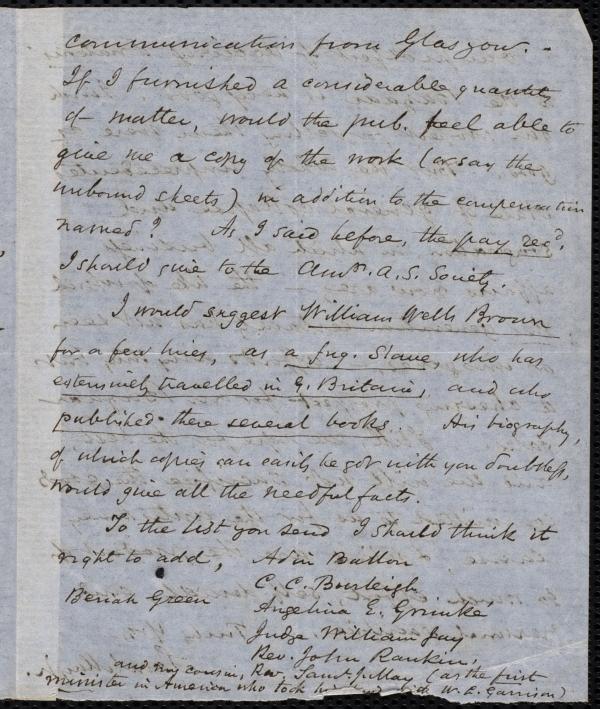 communication from Glasgow. -
If I furnished a considerable quantity
of matter, would the pub. feel able to
give me a copy of the work (or say the
unbound sheets) in addition to the compensation
named? As I said before, the pay recd.
I should give to the Amn. A. S. Society.
I would suggest William Wells Brown
for a few lines, as a fug. Slave, who has
extensively travelled in G. Britain, and who
published there several books. His biography,
of which copies can easily be got with you doubtless,
would give all the needful facts.
To the list you send I should think it
right to add, Adin Ballou
C. C. Burleigh
Beriah Green Angelina E. Grimké
Judge William Jay
Rev. John Rankin,
and my cousin, Rev. Saml. J. May (as the first
minister in America who took his side W. L. Garrison)